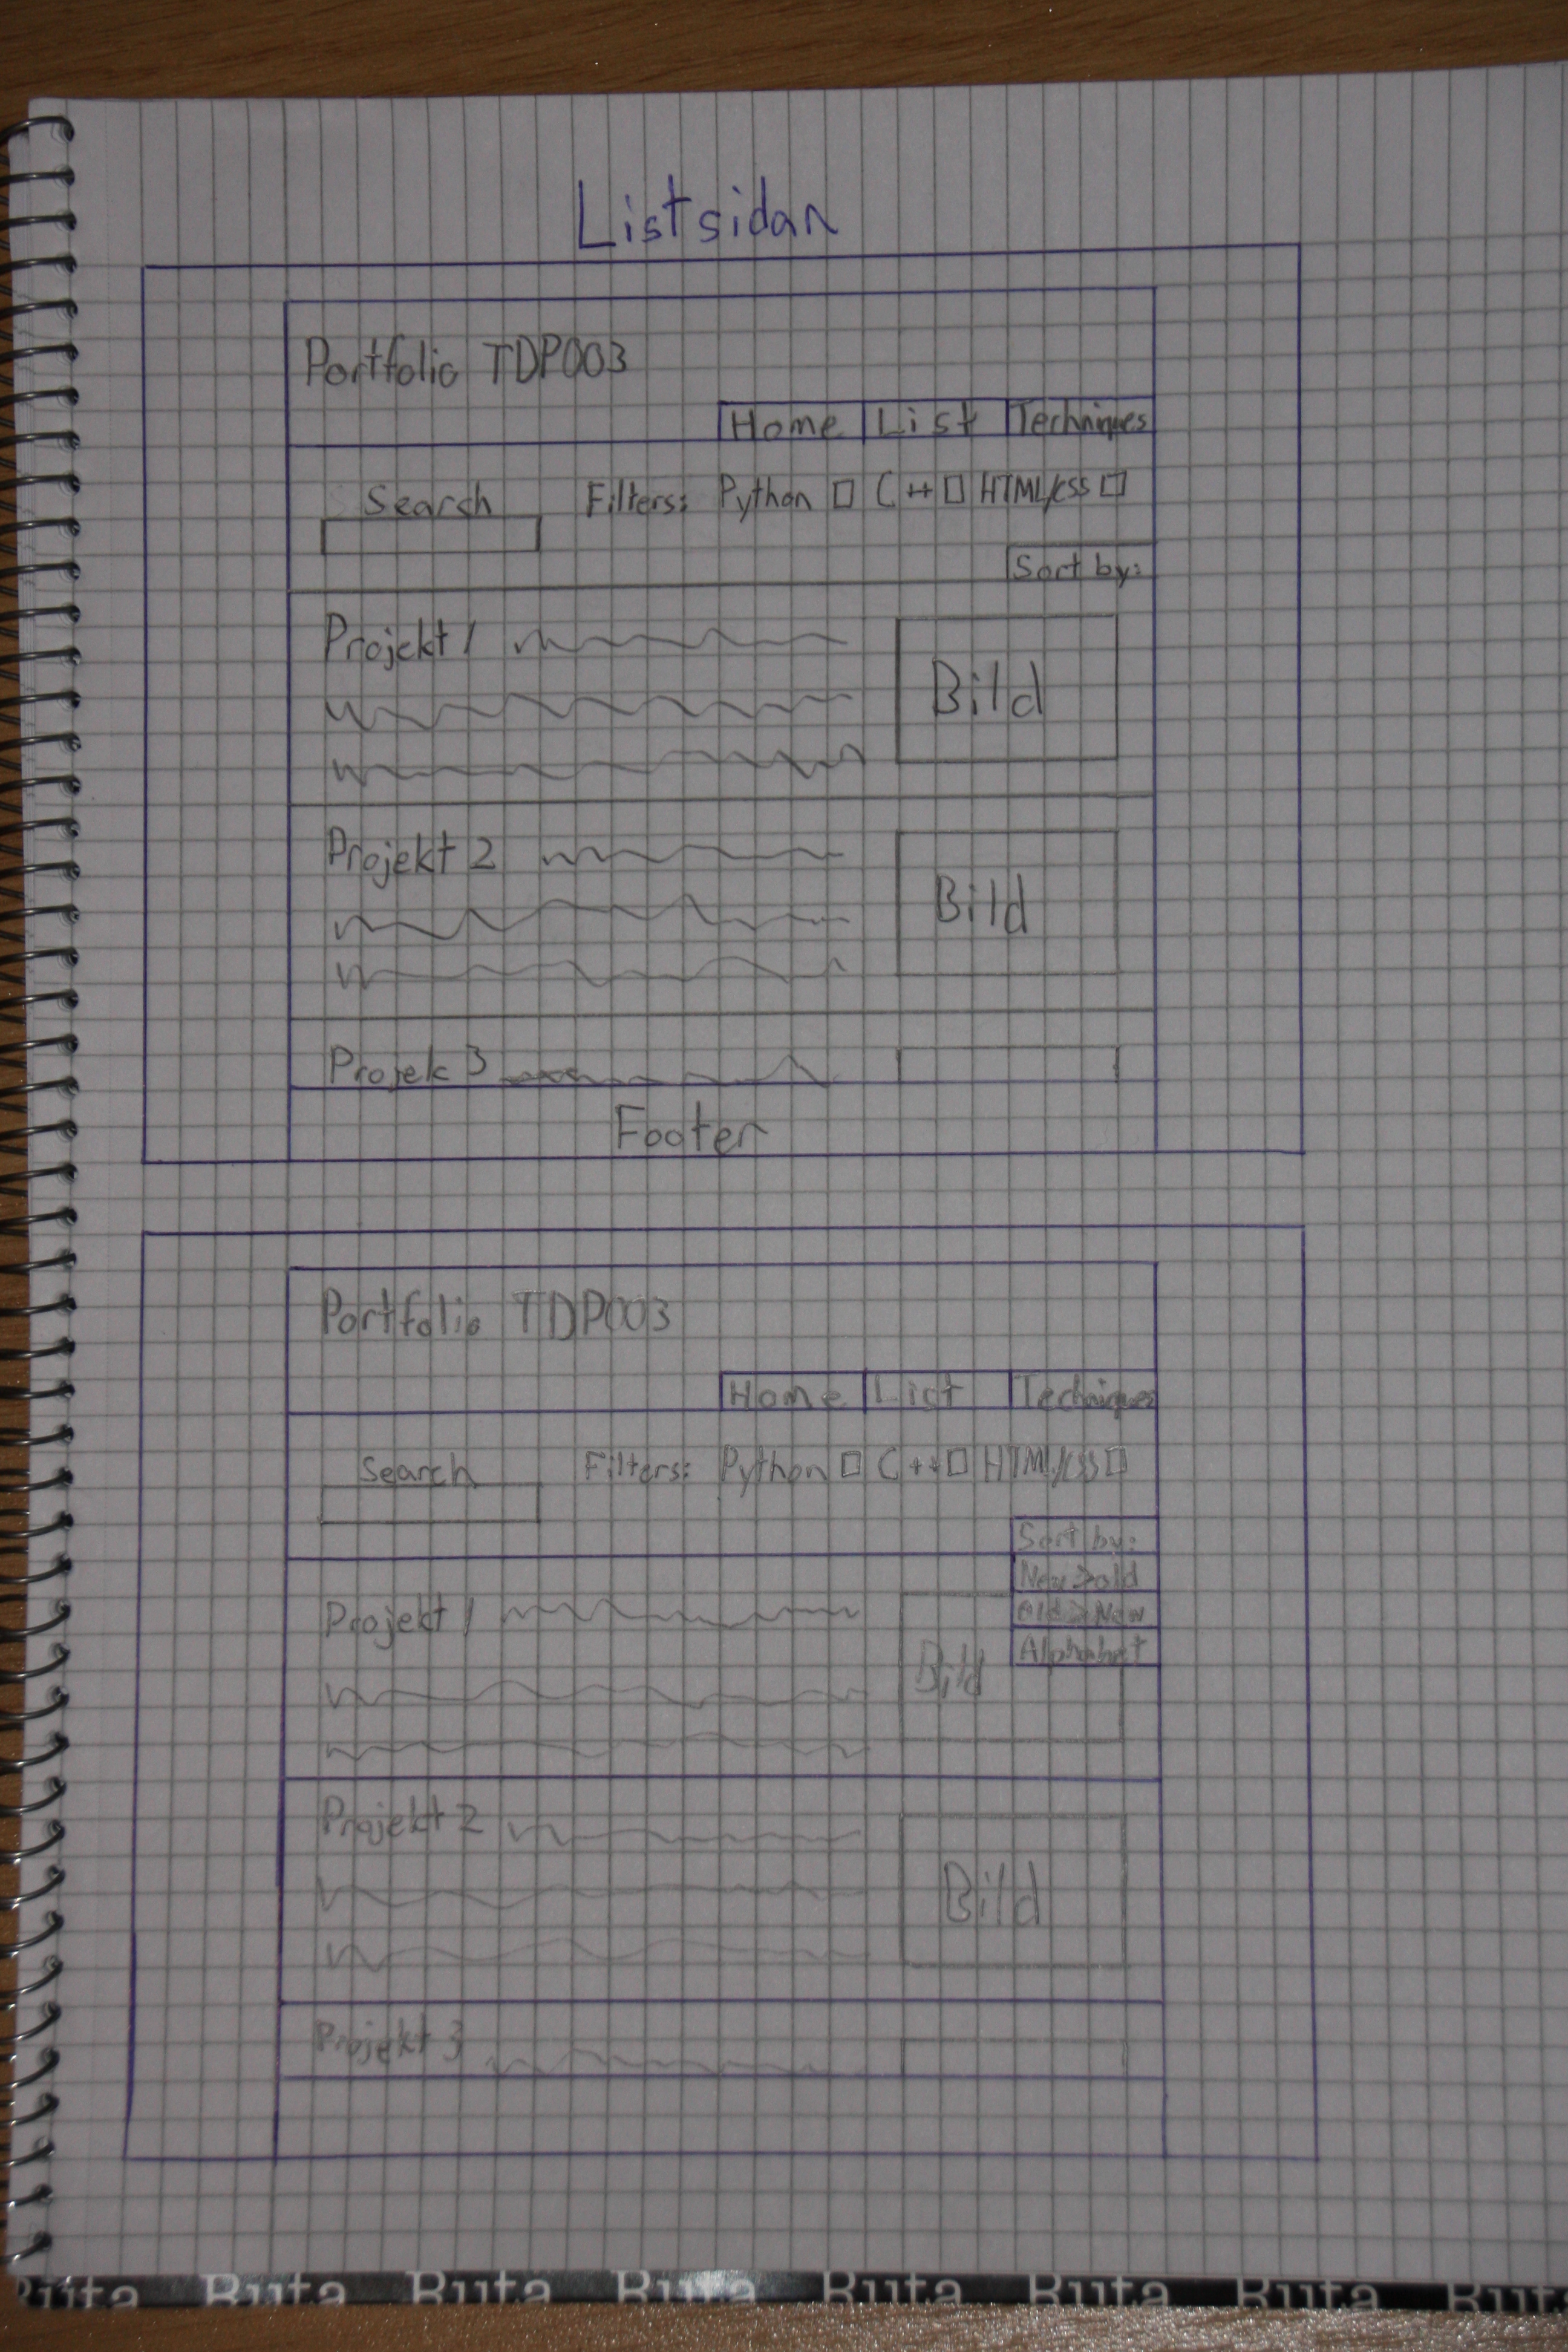 Listsidan
Portfolio TDP003
Home List Techniques
Search Filters: Python C++ HTML/CSS
Sort by:
Projekt 1
Bild
Projekt 2
Bild
Projek 3
Footer
Portfolio TDP003
Home List Techniques
Search Filters: Python C++ HTML/CSS
Sort by:
New>old
Old>New
Projekt 1
Alphabet
Bild
Projekt 2
Bild
Projekt 3
Ruta Ruta Ruta Ruta Ruta Ruta Ruta Rut